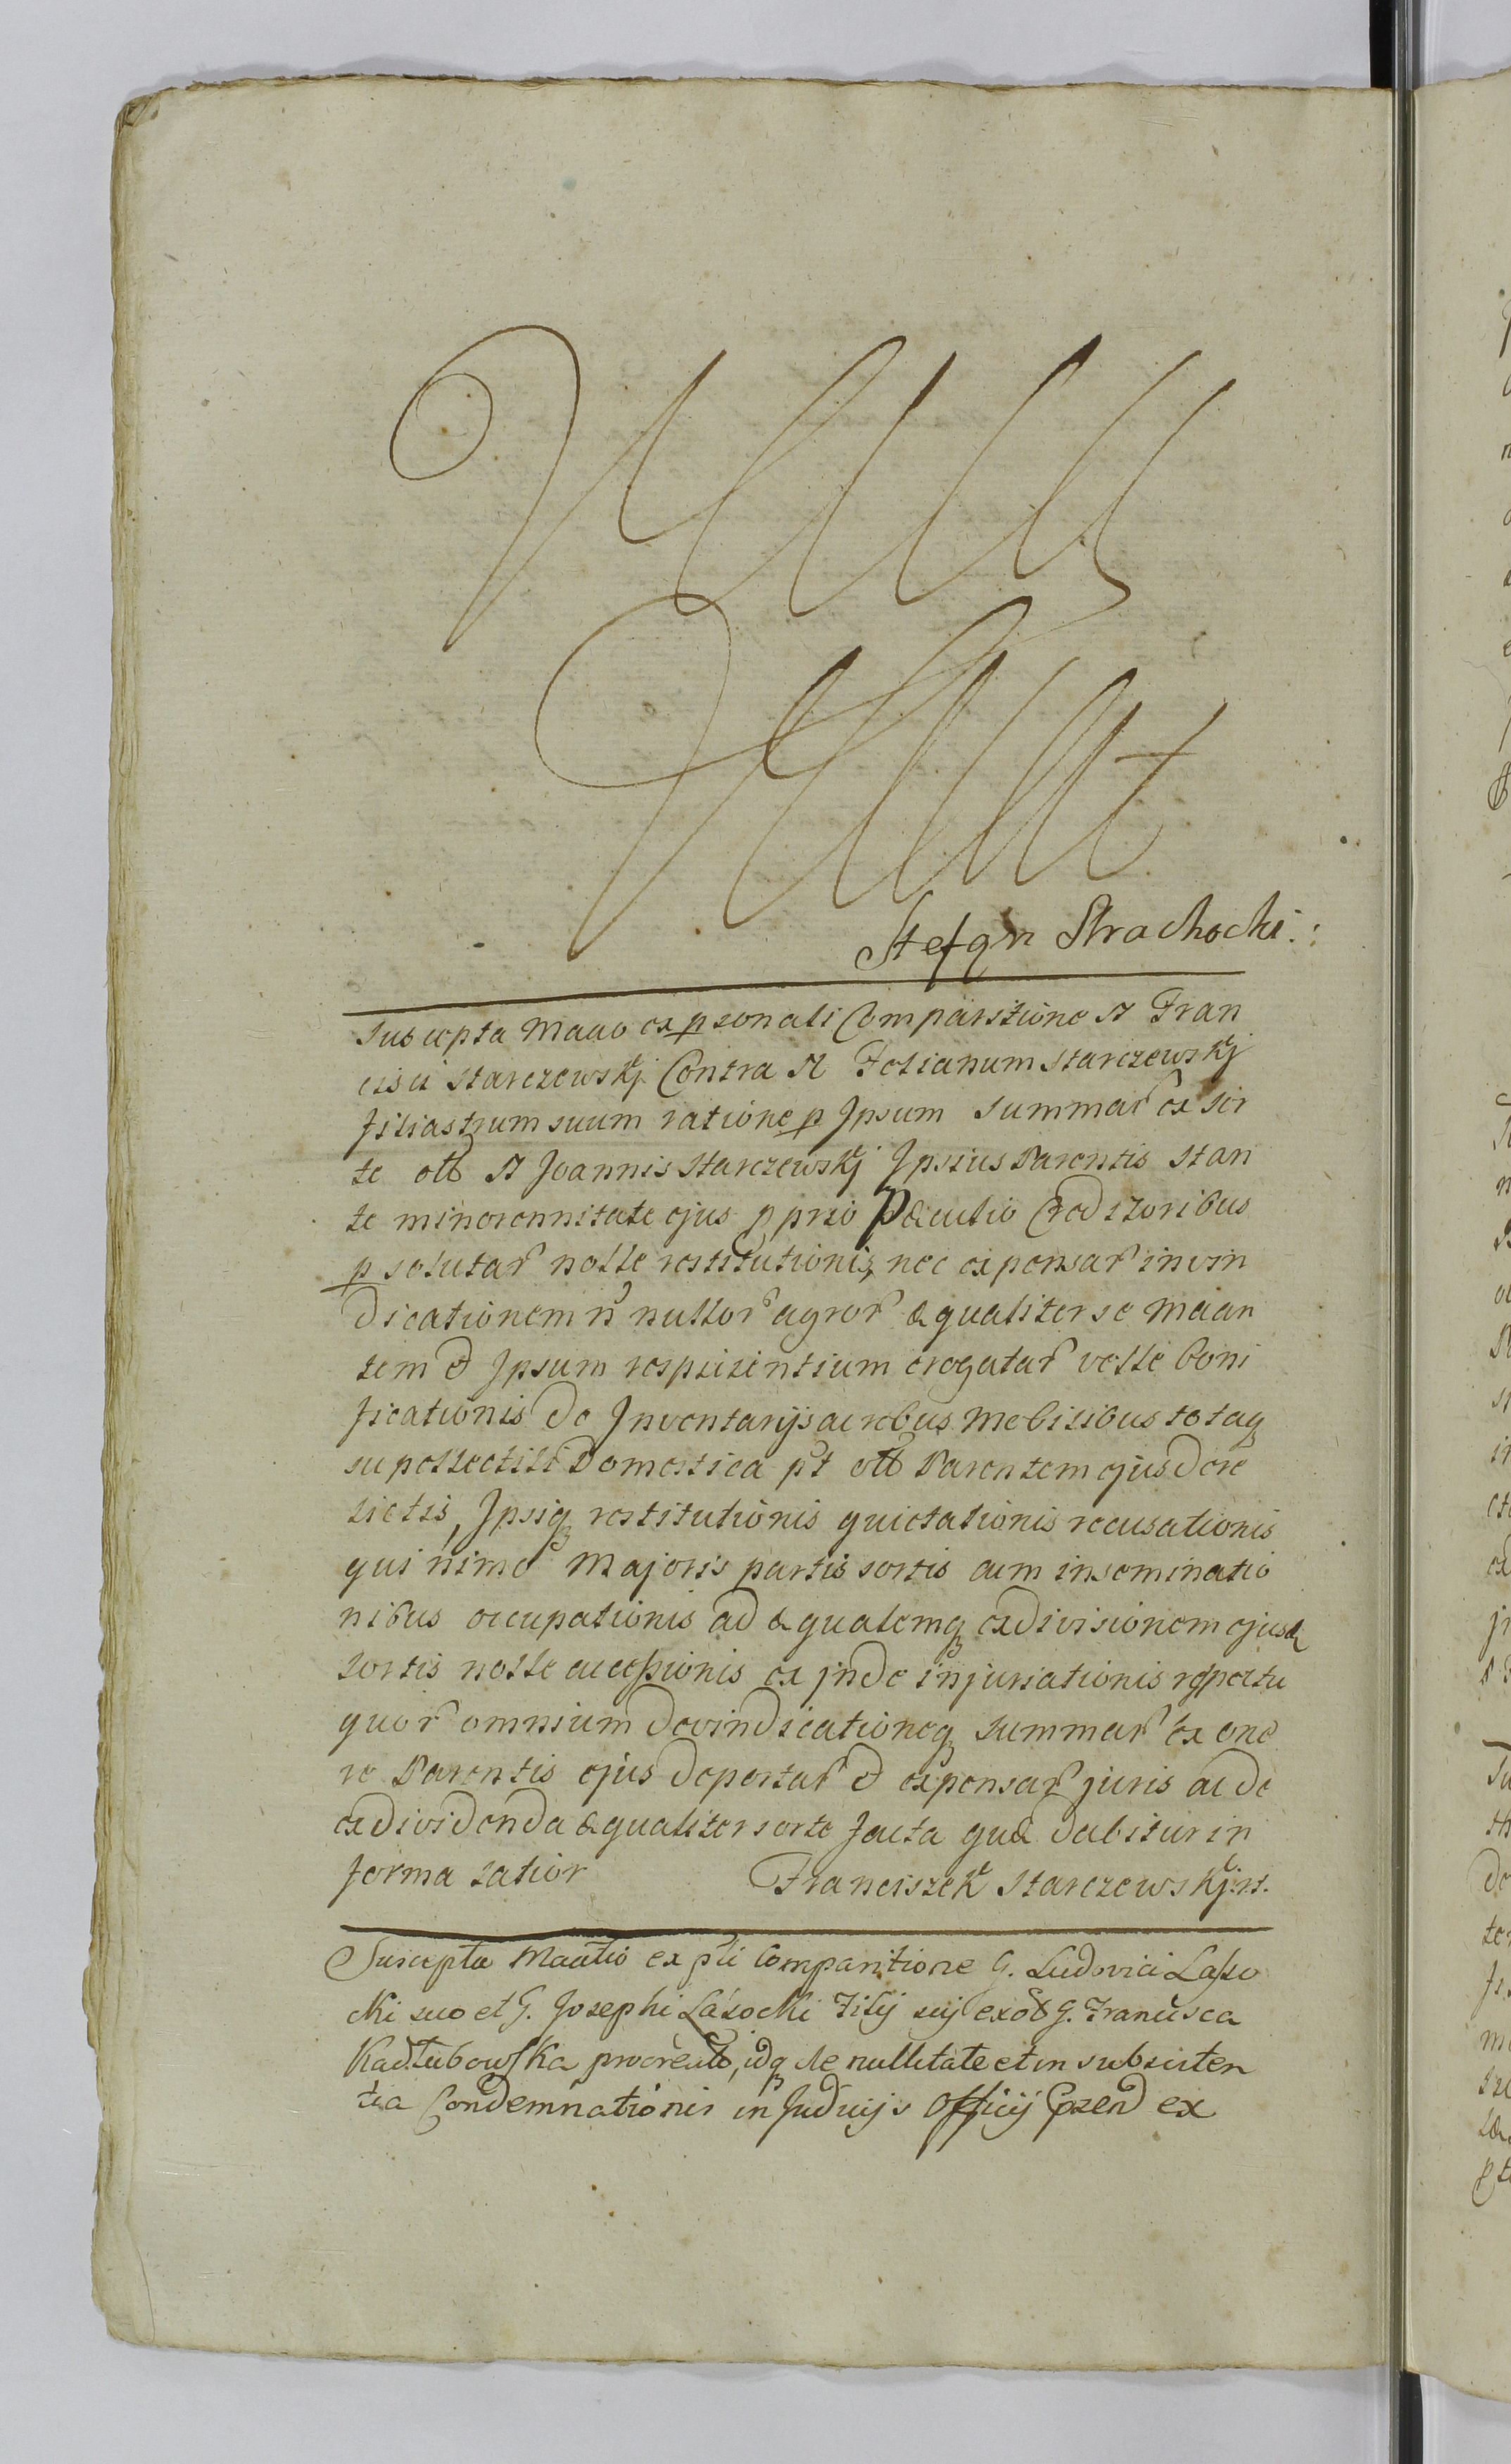 Stefan Strachocki
Suscepta Maao ex psonali Comparitione N Fran
cisci Starczewskj Contra N Felicianum Starczewskj
filiastrum suum ratione p Ipsum Summar ex sor
te olb N Joannis Starczewskj Ipsius Parentis stan
te minorennitate ejus p prio Pæculio Creditoribus
p solutar nolle restitutionis, nec expensar in vin
dicationem n nullor agror æqualiter se Maan
tem & Ipsum respicientium erogatar velle boni
ficationis de Inventarijs ac rebus Mobilibus totaq
supellectili Domestica pt olb Parentem ejus dere
lictis, Ipsiq restitutionis quietationis recusationis
quinimo Majoris partis sortis cum inseminatio
nibus occupationis ad æqualemq exdivisionem ejusd
sortis nolle accessionis ex inde injuriationis respectu
quor omnium devindicationeq summar ex one
re Parentis ejus deportar & expensar juris ac de
exdividenda æqualiter sorte facta quæ dabitur in
forma latior Franciszek Starczewskj
Suscepta Maatio ex pli Comparitione G. Ludovici Laso
cki suo et G. Josephi Lasocki Filij sui ex olb G. Francisca
Kadlubowska procreato, idq de nullitate et in subsisten
tia Condemnationis in Judicijs Officij ex